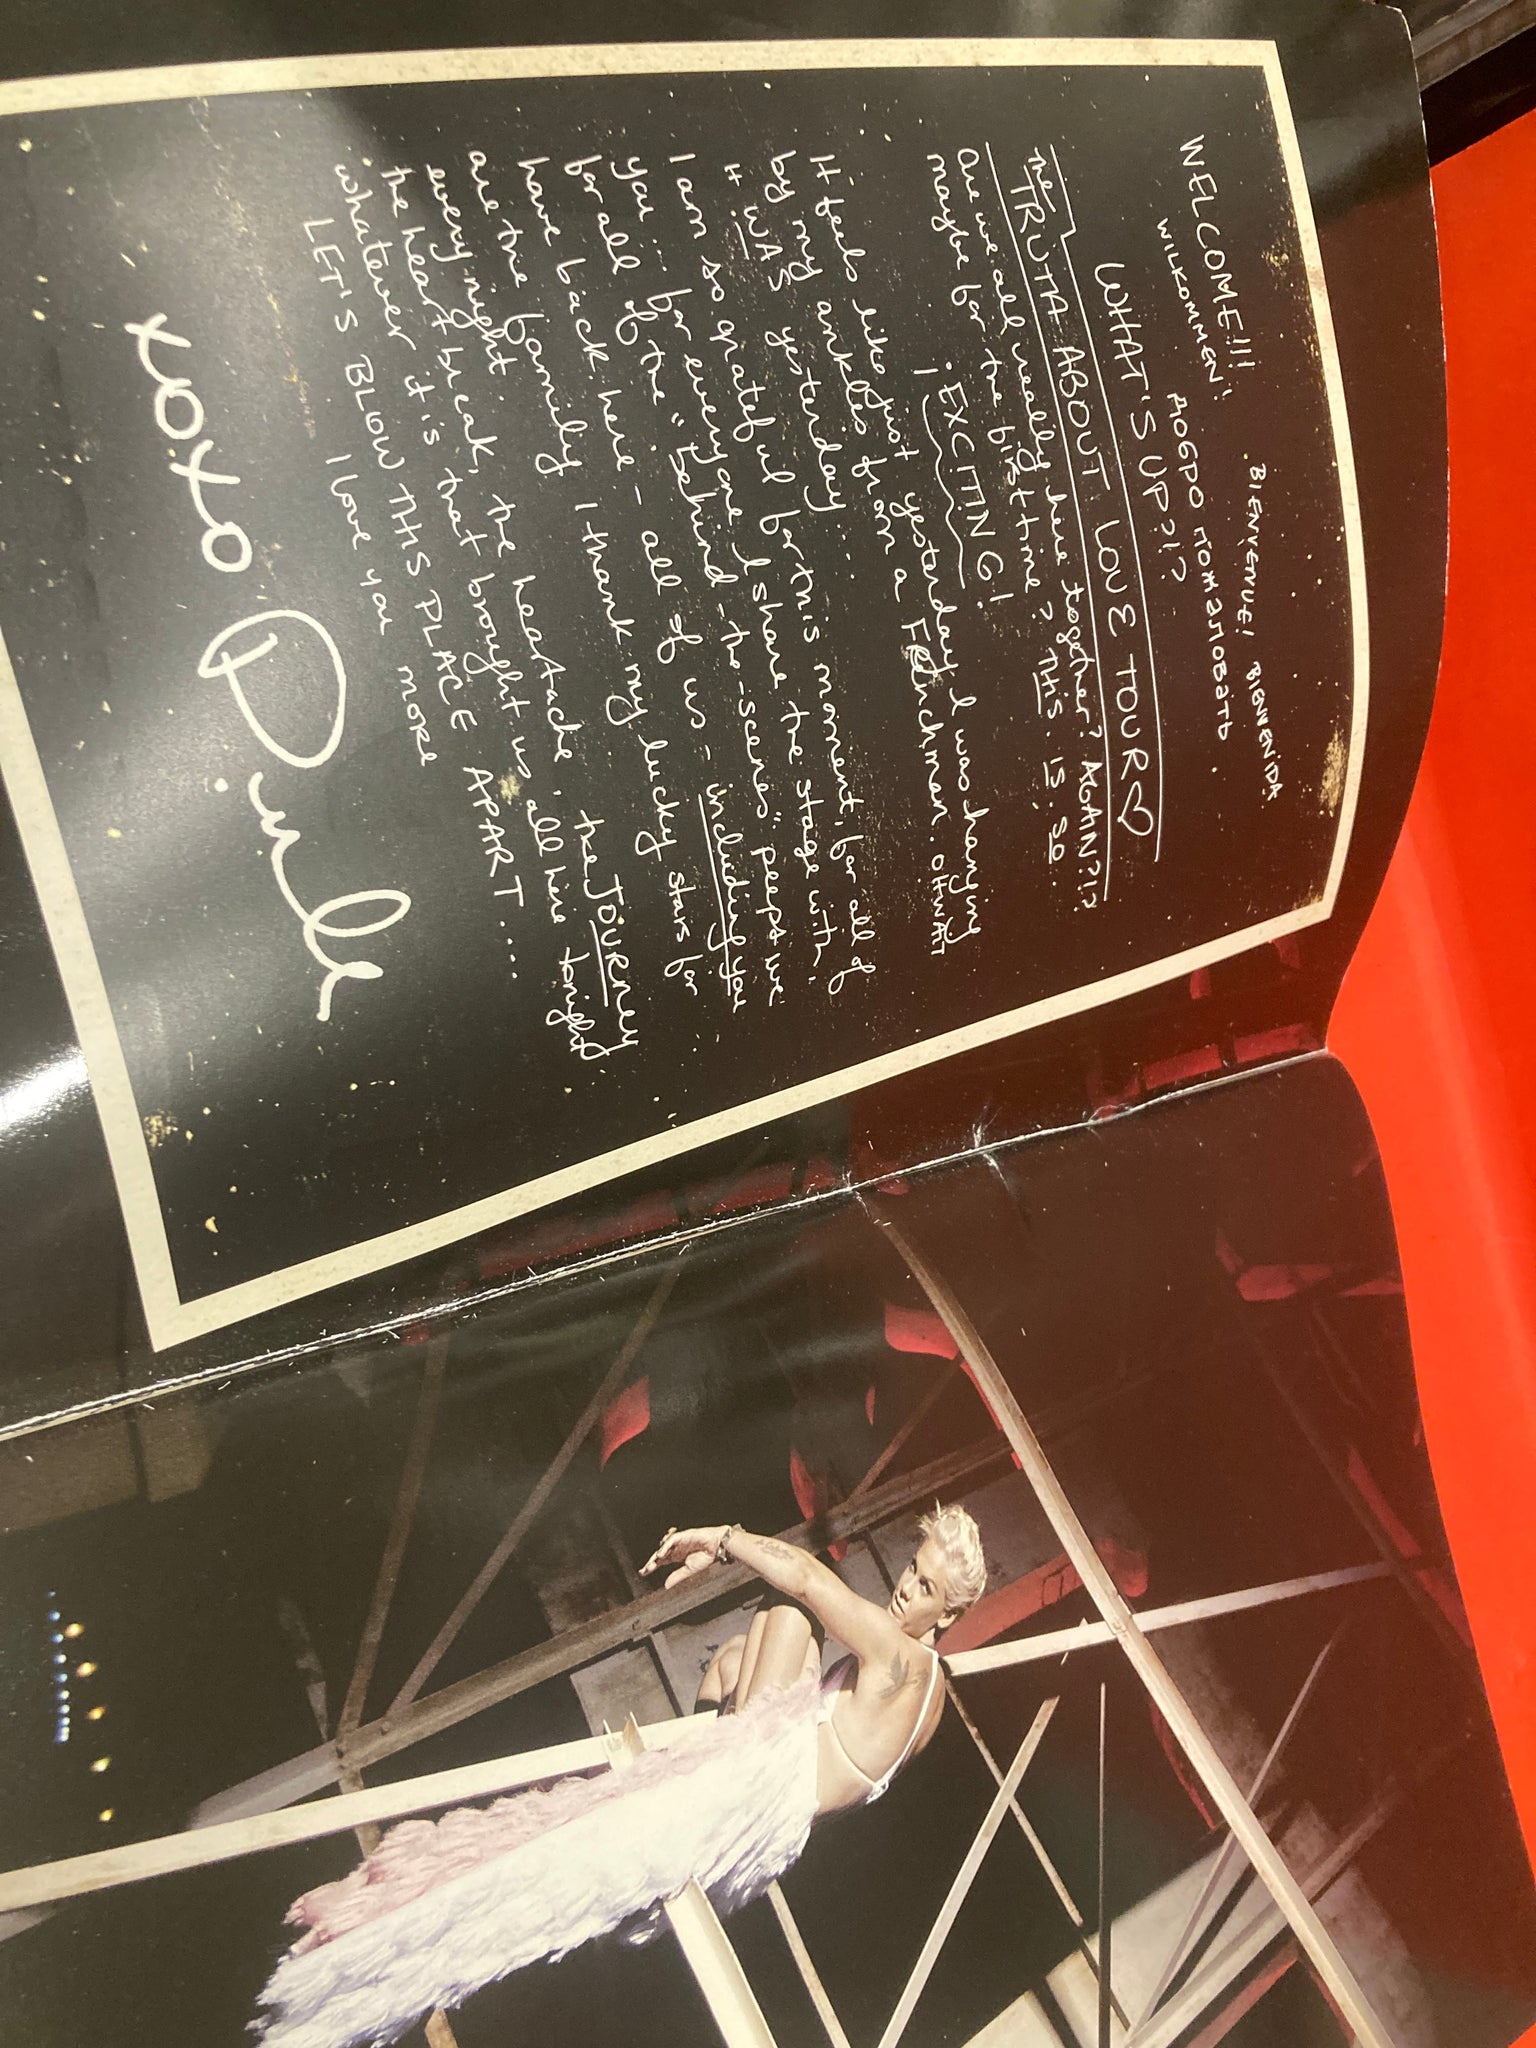 WELCOME!!! BIENVENUE! BIENVENIDA
WILKOMMEN! ДОБРО ПОЖАЛОВАТЬ
WHAT'S UP?!?
the TRUTH ABOUT LOVE TOUR♡
are we all really here together? AGAIN?!?
maybe for the first time? THIS. IS. SO.
¡EXCITING!
It feels like just yesterday I was hanging
by my ankles from a Frenchman. OHWAIT
it WAS yesterday...
I am so grateful for this moment, for all of
you... for everyone I share the stage with,
for all of the "behind-the-scenes" peeps we
have back here - all of us - including you
are the family I thank my lucky stars for
every night.
the heartbreak, the heartache, the JOURNEY
whatever it is that brought us all here tonight
LET'S BLOW THIS PLACE APART....
I love you more
xoxo P!nk